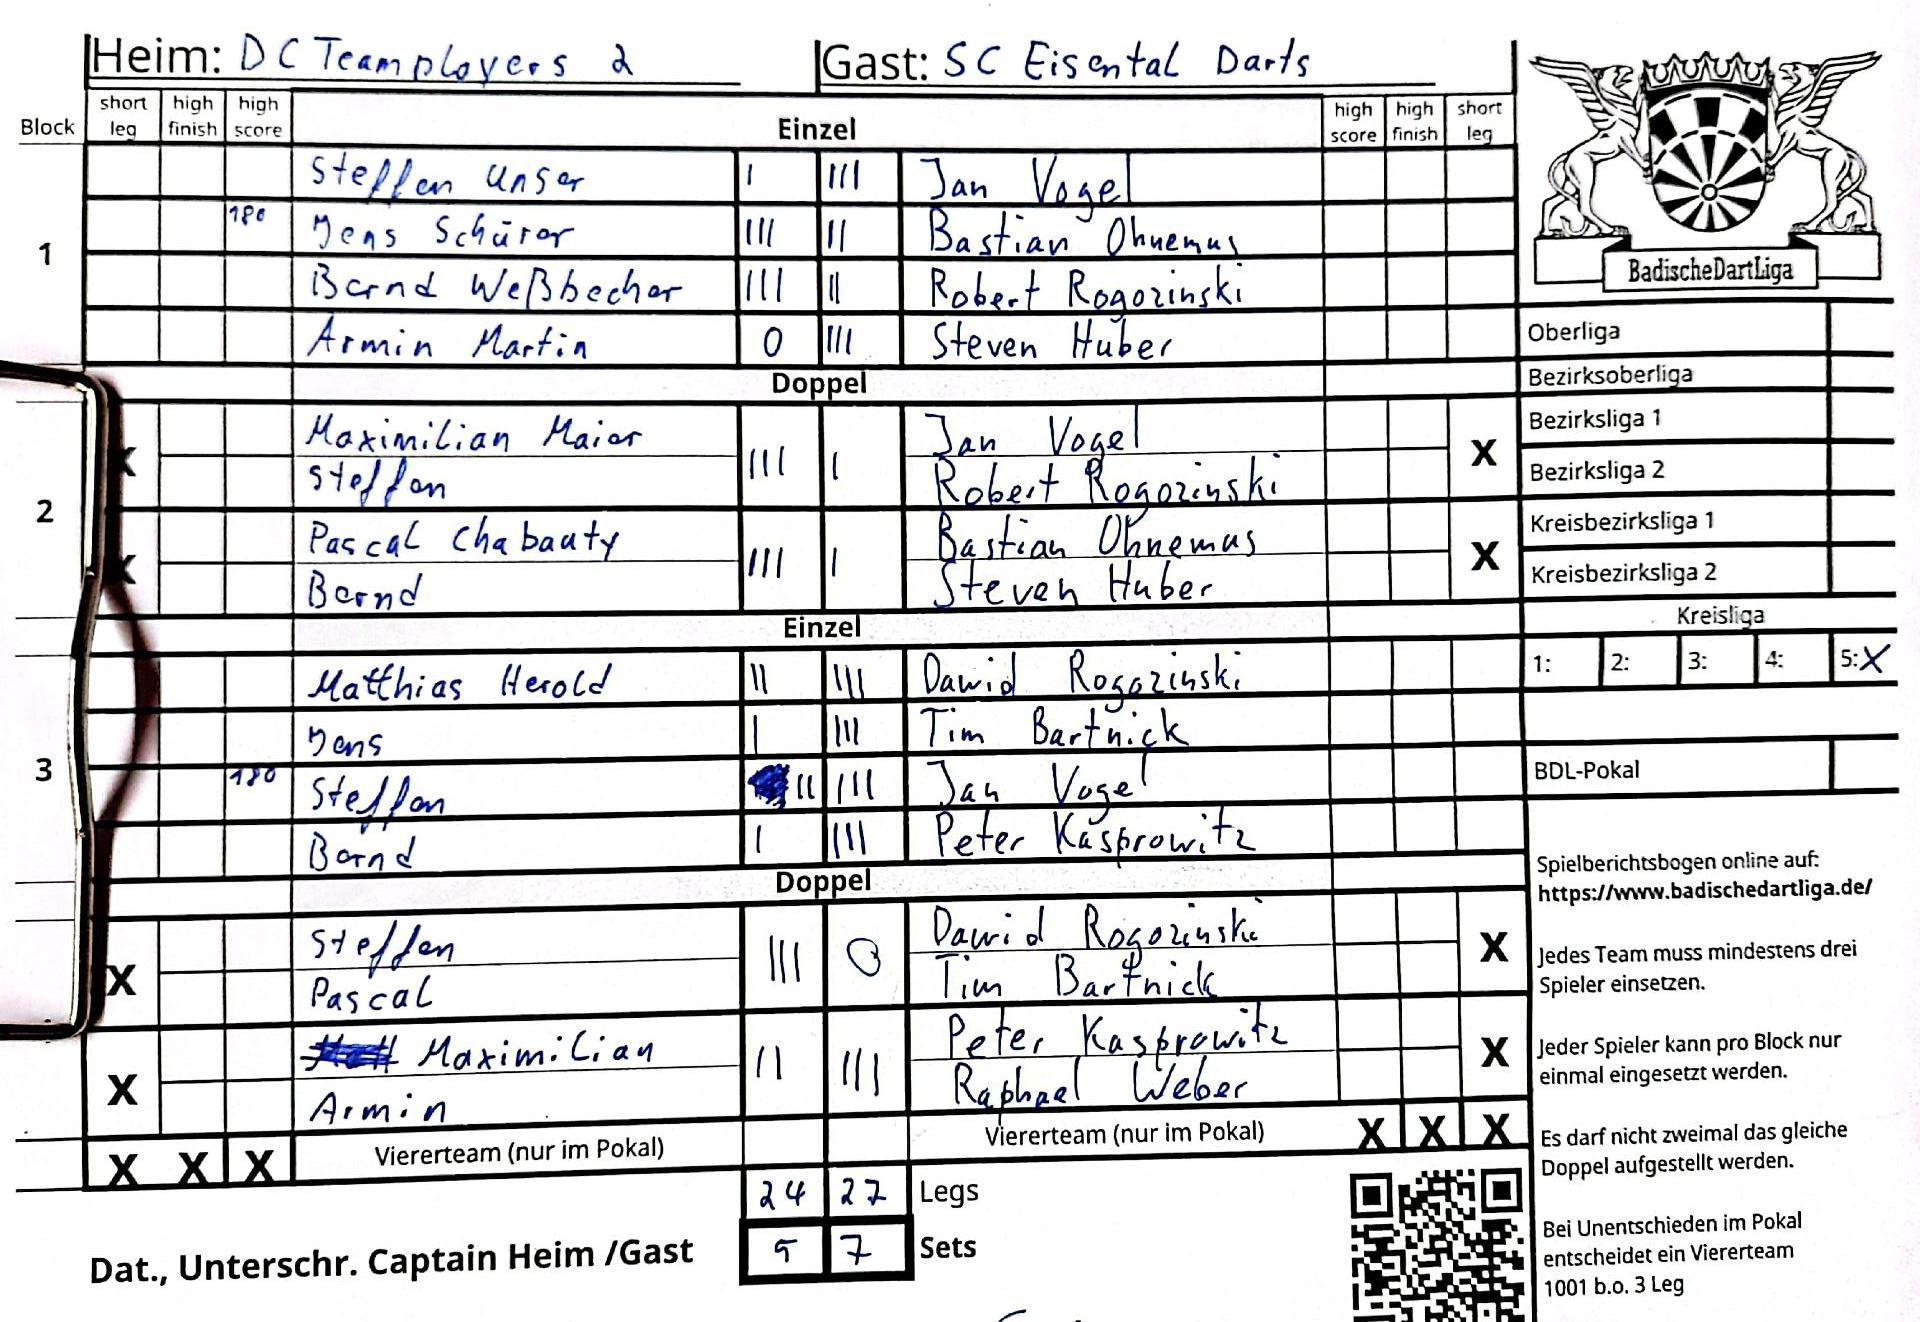 Heim: DC Teamployers 2 Gast: SC Eisental Darts
Block short leg high finish high score Einzel high score high finish short leg
1
Steffen Unser I III Jan Vogel
180 Jens Schürer III II Bastian Ohnemus
Bernd Weßbecher III II Robert Rogozinski
Armin Martin 0 III Steven Huber
Doppel
2
Maximilian Maier III I Jan Vogel X
Steffen Robert Rogozinski
Pascal Chabauty III I Bastian Ohnemus X
Bernd Steven Huber
Einzel
3
Matthias Herold II III Dawid Rogozinski
Jens I III Tim Bartnick
180 Steffen II III Jan Vogel
Bernd I III Peter Kasprowitz
Doppel
X Steffen III 0 Dawid Rogozinski X
Pascal Tim Bartnick
X Maximilian II III Peter Kasprowitz X
Armin Raphael Weber
X X X Viererteam (nur im Pokal) Viererteam (nur im Pokal) X X X
24 27 Legs
Dat., Unterschr. Captain Heim /Gast 5 7 Sets
BadischeDartLiga
Oberliga
Bezirksoberliga
Bezirksliga 1
Bezirksliga 2
Kreisbezirksliga 1
Kreisbezirksliga 2
Kreisliga
1: 2: 3: 4: 5: X
BDL-Pokal
Spielberichtsbogen online auf:
https://www.badischedartliga.de/
Jedes Team muss mindestens drei
Spieler einsetzen.
Jeder Spieler kann pro Block nur
einmal eingesetzt werden.
Es darf nicht zweimal das gleiche
Doppel aufgestellt werden.
Bei Unentschieden im Pokal
entscheidet ein Viererteam
1001 b.o. 3 Leg